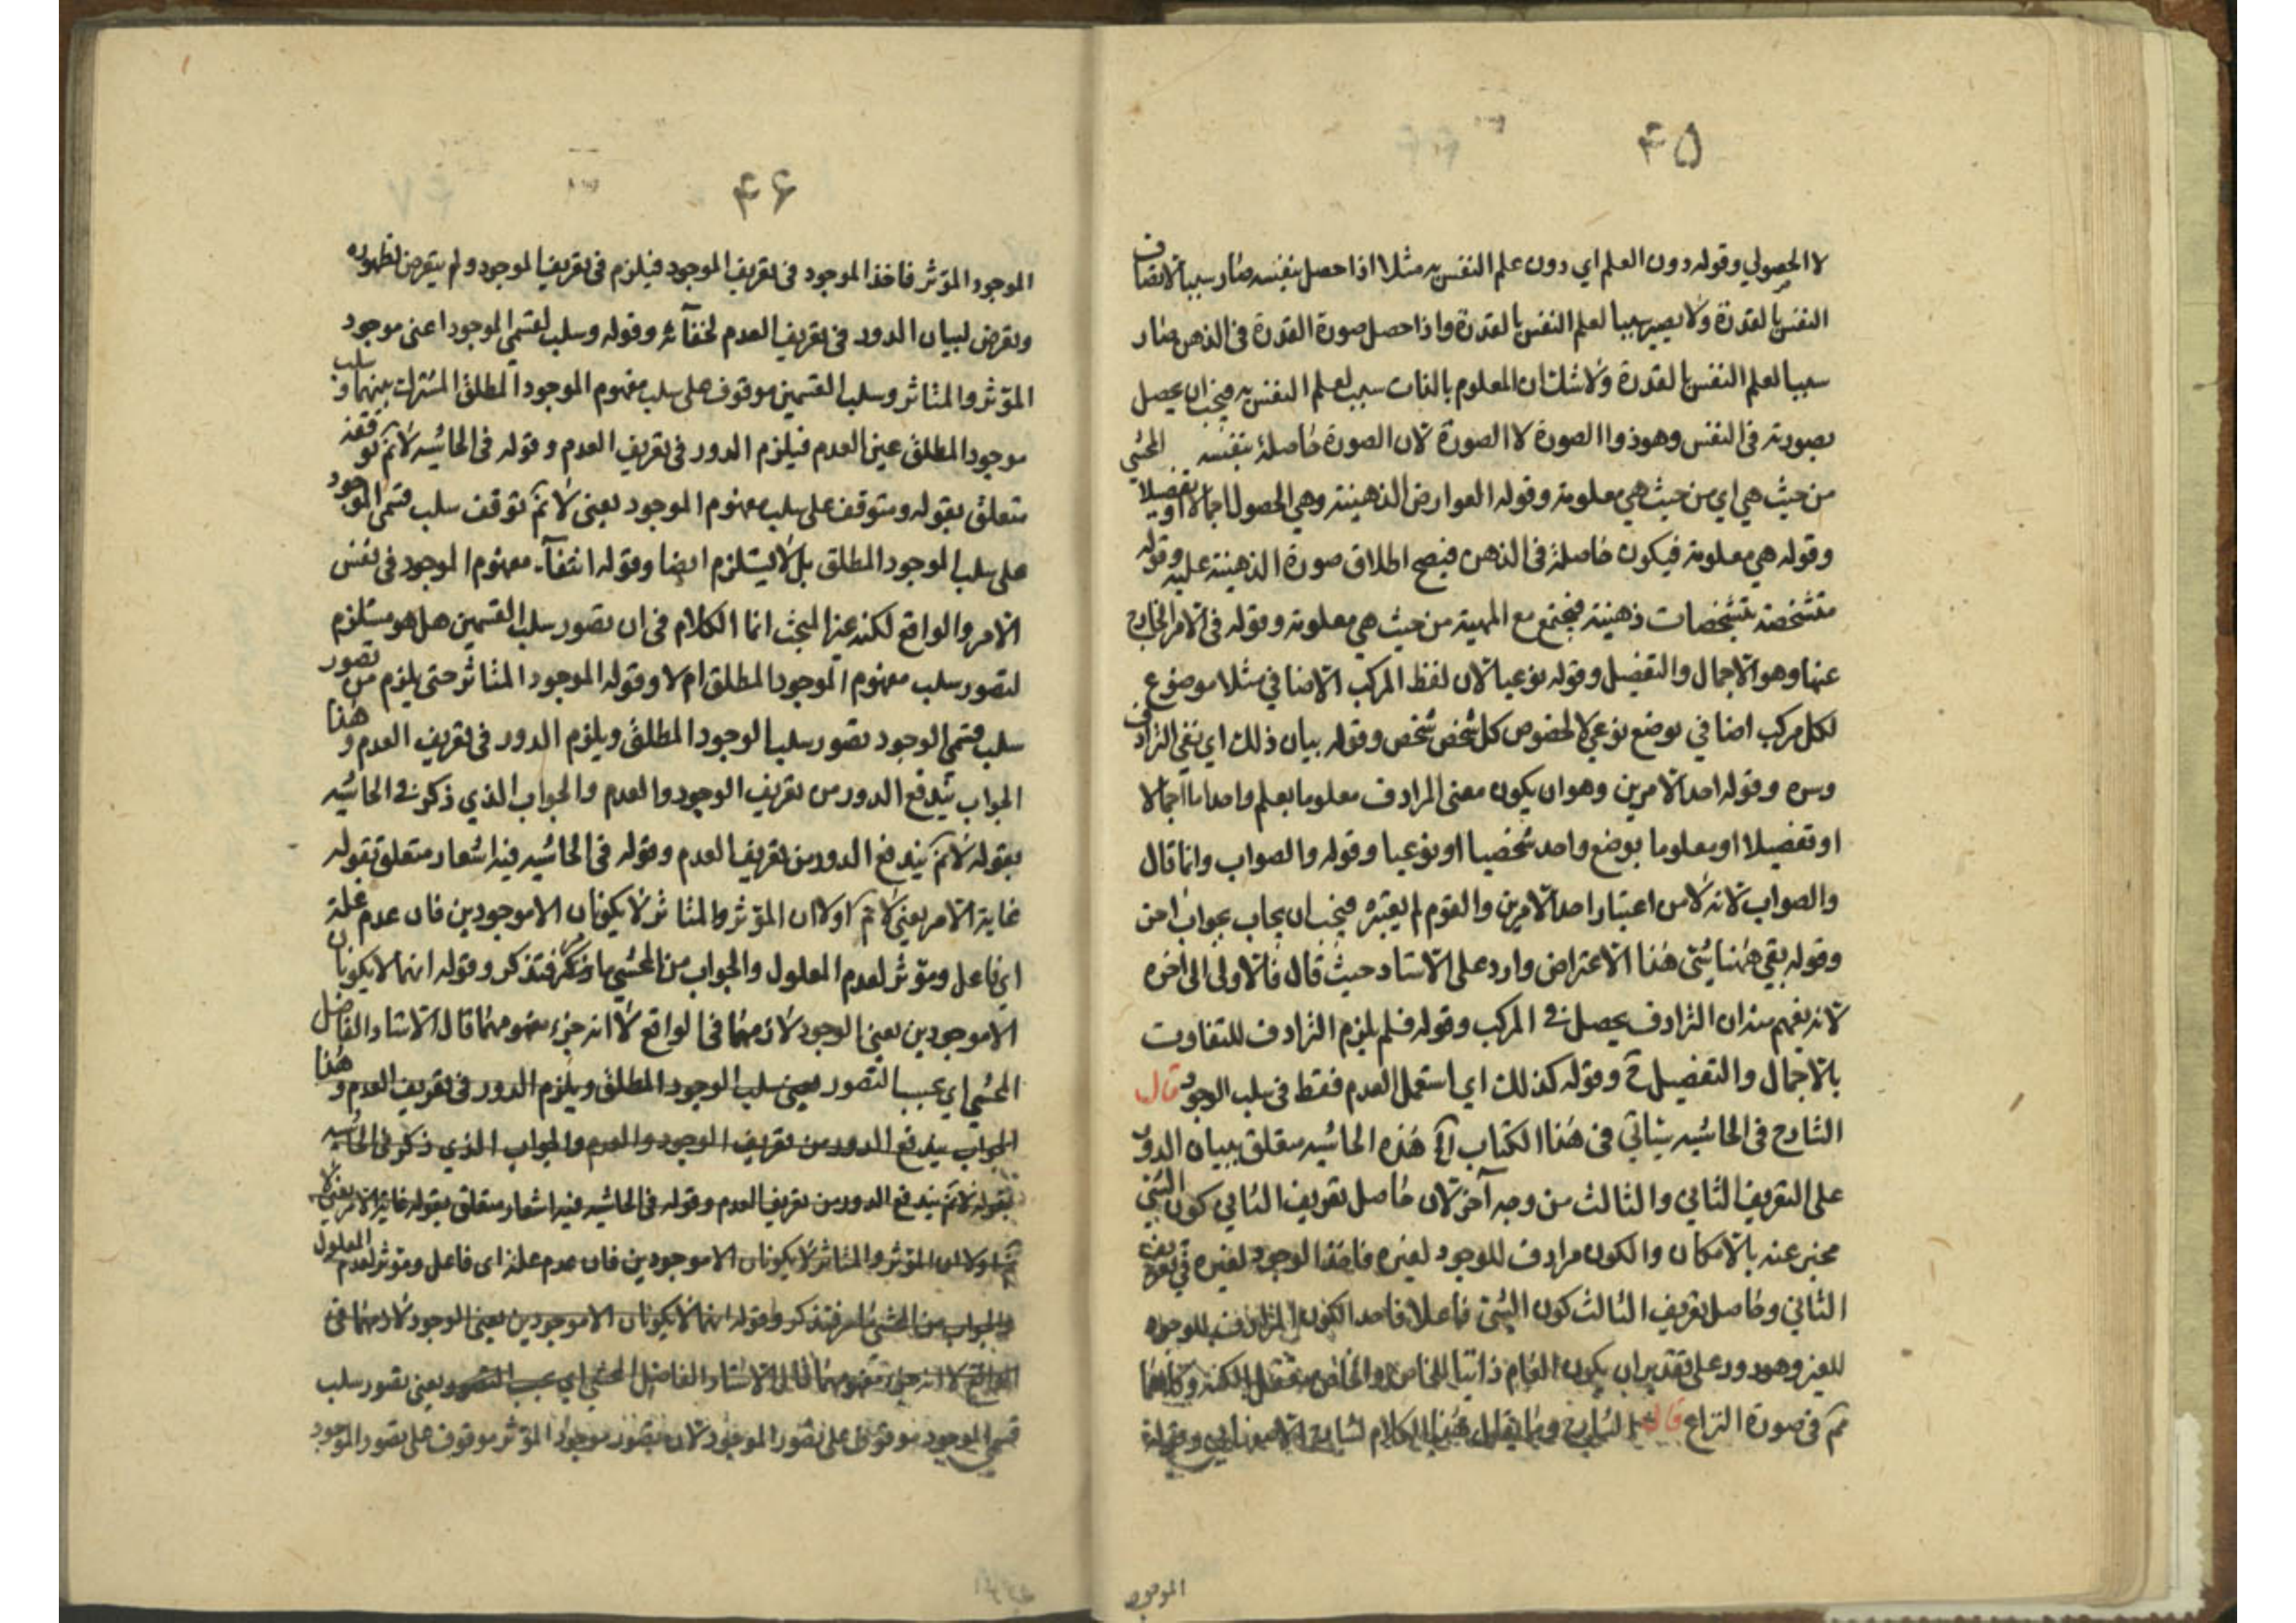 ۴۵
لا الحصولي وقوله دون العلم اي دون علم النفس به مثلا اذا حصل بنفسه صار سببا لاتصاف
النفس بالقدرة ولا يصير سببا لعلم النفس بالقدرة واذا حصل صورة القدرة فى الذهن صار
سببا لعلم النفس بالقدرة ولا شك ان المعلوم بالذات سبب لعلم النفس به فيجب ان يحصل
بصورته فى النفس وهو ذو الصورة لا الصورة لان الصورة حاصلة بنفسه المحشي
من حيث هي اي من حيث هي معلومة وقوله العوارض الذهنية وهي الحصول اجمالا او تفصيلا
وقوله هي معلومة فيكون حاصلة فى الذهن فيصح اطلاق صورة الذهنية عليه وقوله
متشخصة بتشخصات ذهنية فيجتمع مع المهية من حيث هي معلومة وقوله فى الامر الخارج
عنها وهو الاجمال والتفصيل وقوله نوعيا لان لفظ المركب الاضافي مثلا موضوع
لكل مركب اضافي بوضع نوعي لا لخصوص كل شخص شخص وقوله بيان ذلك اي نفي الترادف
وسره وقوله احد الامرين وهو ان يكون معنى المرادف معلوما بعلم واحد اما اجمالا
او تفصيلا او معلوما بوضع واحد شخصيا او نوعيا وقوله والصواب وانما قال
والصواب لانه لا من اعتبار احد الامرين والقوم لم يعتبره فيجب ان يجاب بجواب احن
وقوله بقي ههنا شئ هذا الاعتراض وارد على الاستاد حيث قال فالاولى الى اخره
لانه يفهم منه ان الترادف يحصل فے المركب وقوله فلم يلزم الترادف للتفاوت
بالاجمال والتفصيل ح وقوله كذلك اي استعمل العدم فقط فى سلب الوجود قال
الشارح فى الحاشيه سياتي فى هذا الكتاب آه هذه الحاشيه متعلق ببيان الدور
على التعريف الثاني والثالث من وجه آخر لان حاصل تعريف الثاني كون الشئ
مخبر عنه بالامكان والكون مرادف للوجود لغيره فاخذ الوجود لغيره في تعريف
الثاني وحاصل تعريف الثالث كون الشئ فاعلا فاحد الكون المرادف للوجود
للغير وهو دور على تقدير ان يكون العام ذاتيا للخاص والخاص متعقل بالكنه وكلاهما
ثم فى صورة النزاع قال الشارح وما يقال الكلام لشارح الاصفهاني وقوله
الموجود
۴۶
الموجود المؤثر فاخذ الموجود فى تعريف الموجود فيلزم فى تعريف الموجود ولم يتعرض لظهوره
وتعرض لبيان الدور فى تعريف العدم لخفآئه وقوله وسلب لقسمي الموجود اعنى موجود
المؤثر والمتاثر وسلب القسمين موقوف على سلب مفهوم الموجود المطلق المشترك بينهما وسلب
موجود المطلق عين العدم فيلزم الدور فى تعريف العدم وقوله فى الحاشيه لانم توقفه
متعلق بقوله ومتوقف على سلب مفهوم الموجود يعنى لانم توقف سلب قسمى الموجود
على سلب الموجود المطلق بل لا يستلزم ايضا وقوله انتفآء مفهوم الموجود فى نفس
الامر والواقع لكنه عين المبحث انما الكلام فى ان تصور سلب القسمين هل هو مستلزم
لتصور سلب مفهوم الموجود المطلق ام لا وقوله الموجود المتاثر حتى يلزم من تصور
سلب قسمى الوجود تصور سلب الوجود المطلق ويلزم الدور فى تعريف العدم وهذا
الجواب يندفع الدور من تعريف الوجود والعدم والجواب الذي ذكر فے الحاشيه
بقوله لانم يندفع الدور من تعريف العدم وقوله فى الحاشيه فيه اشعار متعلق بقوله
غاية الامر يعنى لانم اولا ان المؤثر والمتاثر لا يكونان الا موجودين فان عدم علة
اي فاعل ومؤثر لعدم المعلول والجواب من المحشي فتذكر وقوله انهما لا يكونان
الا موجودين يعنى الوجود لازمهما فى الواقع لا انه جزء مفهومهما قال الاستاد الفاضل
المحشي اي بحسب التصور يعنى سلب الوجود المطلق ويلزم الدور فى تعريف العدم وهذا
الجواب يندفع الدور من تعريف الوجود والعدم والجواب الذي ذكر فى الحاشيه
بقوله لانم يندفع الدور من تعريف العدم وقوله فى الحاشيه فيه اشعار متعلق بقوله غاية الامر يعنى لا
نم اولا ان المؤثر والمتاثر لا يكونان الا موجودين فان عدم علة اى فاعل ومؤثر لعدم المعلول
والجواب من المحشى فتذكر وقوله انهما لا يكونان الا موجودين يعنى الوجود لازمهما فى
الواقع لا انه جزء مفهومهما قال الاستاد الفاضل المحشي اي بحسب التصور يعنى تصور سلب
قسمي الموجود موقوف على تصور الموجود لان تصور موجود المؤثر موقوف على تصور الموجود